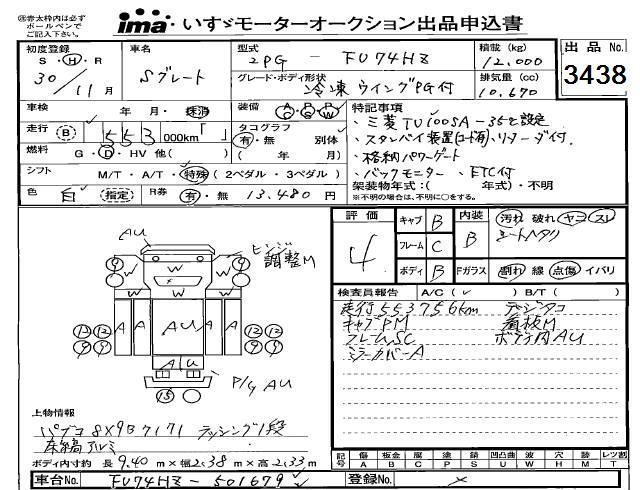 ㊟赤太枠内は必ず
ボールペンで
ご記入下さい。
ima いすゞモーターオークション出品申込書
初度登録 S・H・R 30/11月
車名 Sグレート
型式 2PG - FU74HZ
積載 (kg) 12,000
出品No. 3438
グレード・ボディ形状 冷凍ウイングPG付
排気量 (cc) 10,670
車検 年 月・抹消
装備 AC PS PW
特記事項
走行 (B) 553 000km「 」
タコグラフ 有・無 別体 ( 年 月)
・三菱TU100SA-35℃設定
・スタンバイ装置(コード有)、リターダ付
燃料 G・D・HV 他( )
・格納パワーゲート
シフト M/T・A/T・特殊 (2ペダル・3ペダル)
・バックモニター ・ETC付
色 白 指定
R券 有・無 13,480 円
架装物年式:( 年式)・不明
※不明の場合は、不明に○をする。
評価 4
キャブ B
内装 B
汚れ 破れ ヤコ スレ
フレーム C
シートヘタリ
ボディ B
Fガラス 割れ 線 点傷 イバリ
AU
ヒンジ調整M
W
W W
W
A A AU A A
AU
P/G AU
検査員報告 A/C(✓) B/T( )
走行553756km デジタコ
キャブPM 看板M
フレームSC ボデ内AU
ミラーカバーA
上物情報
パブコ 8X9B7171 ラッシング1段
床縞アルミ
ボディ内寸約 長9.40 m×幅2.38 m×高2.33 m
記号 傷A 板金B 腐C 塗P 錆S 凹凸曲U 波W 穴H 飛 修M レツ割T
車台No. FU74HZ-501679
登録No. ×